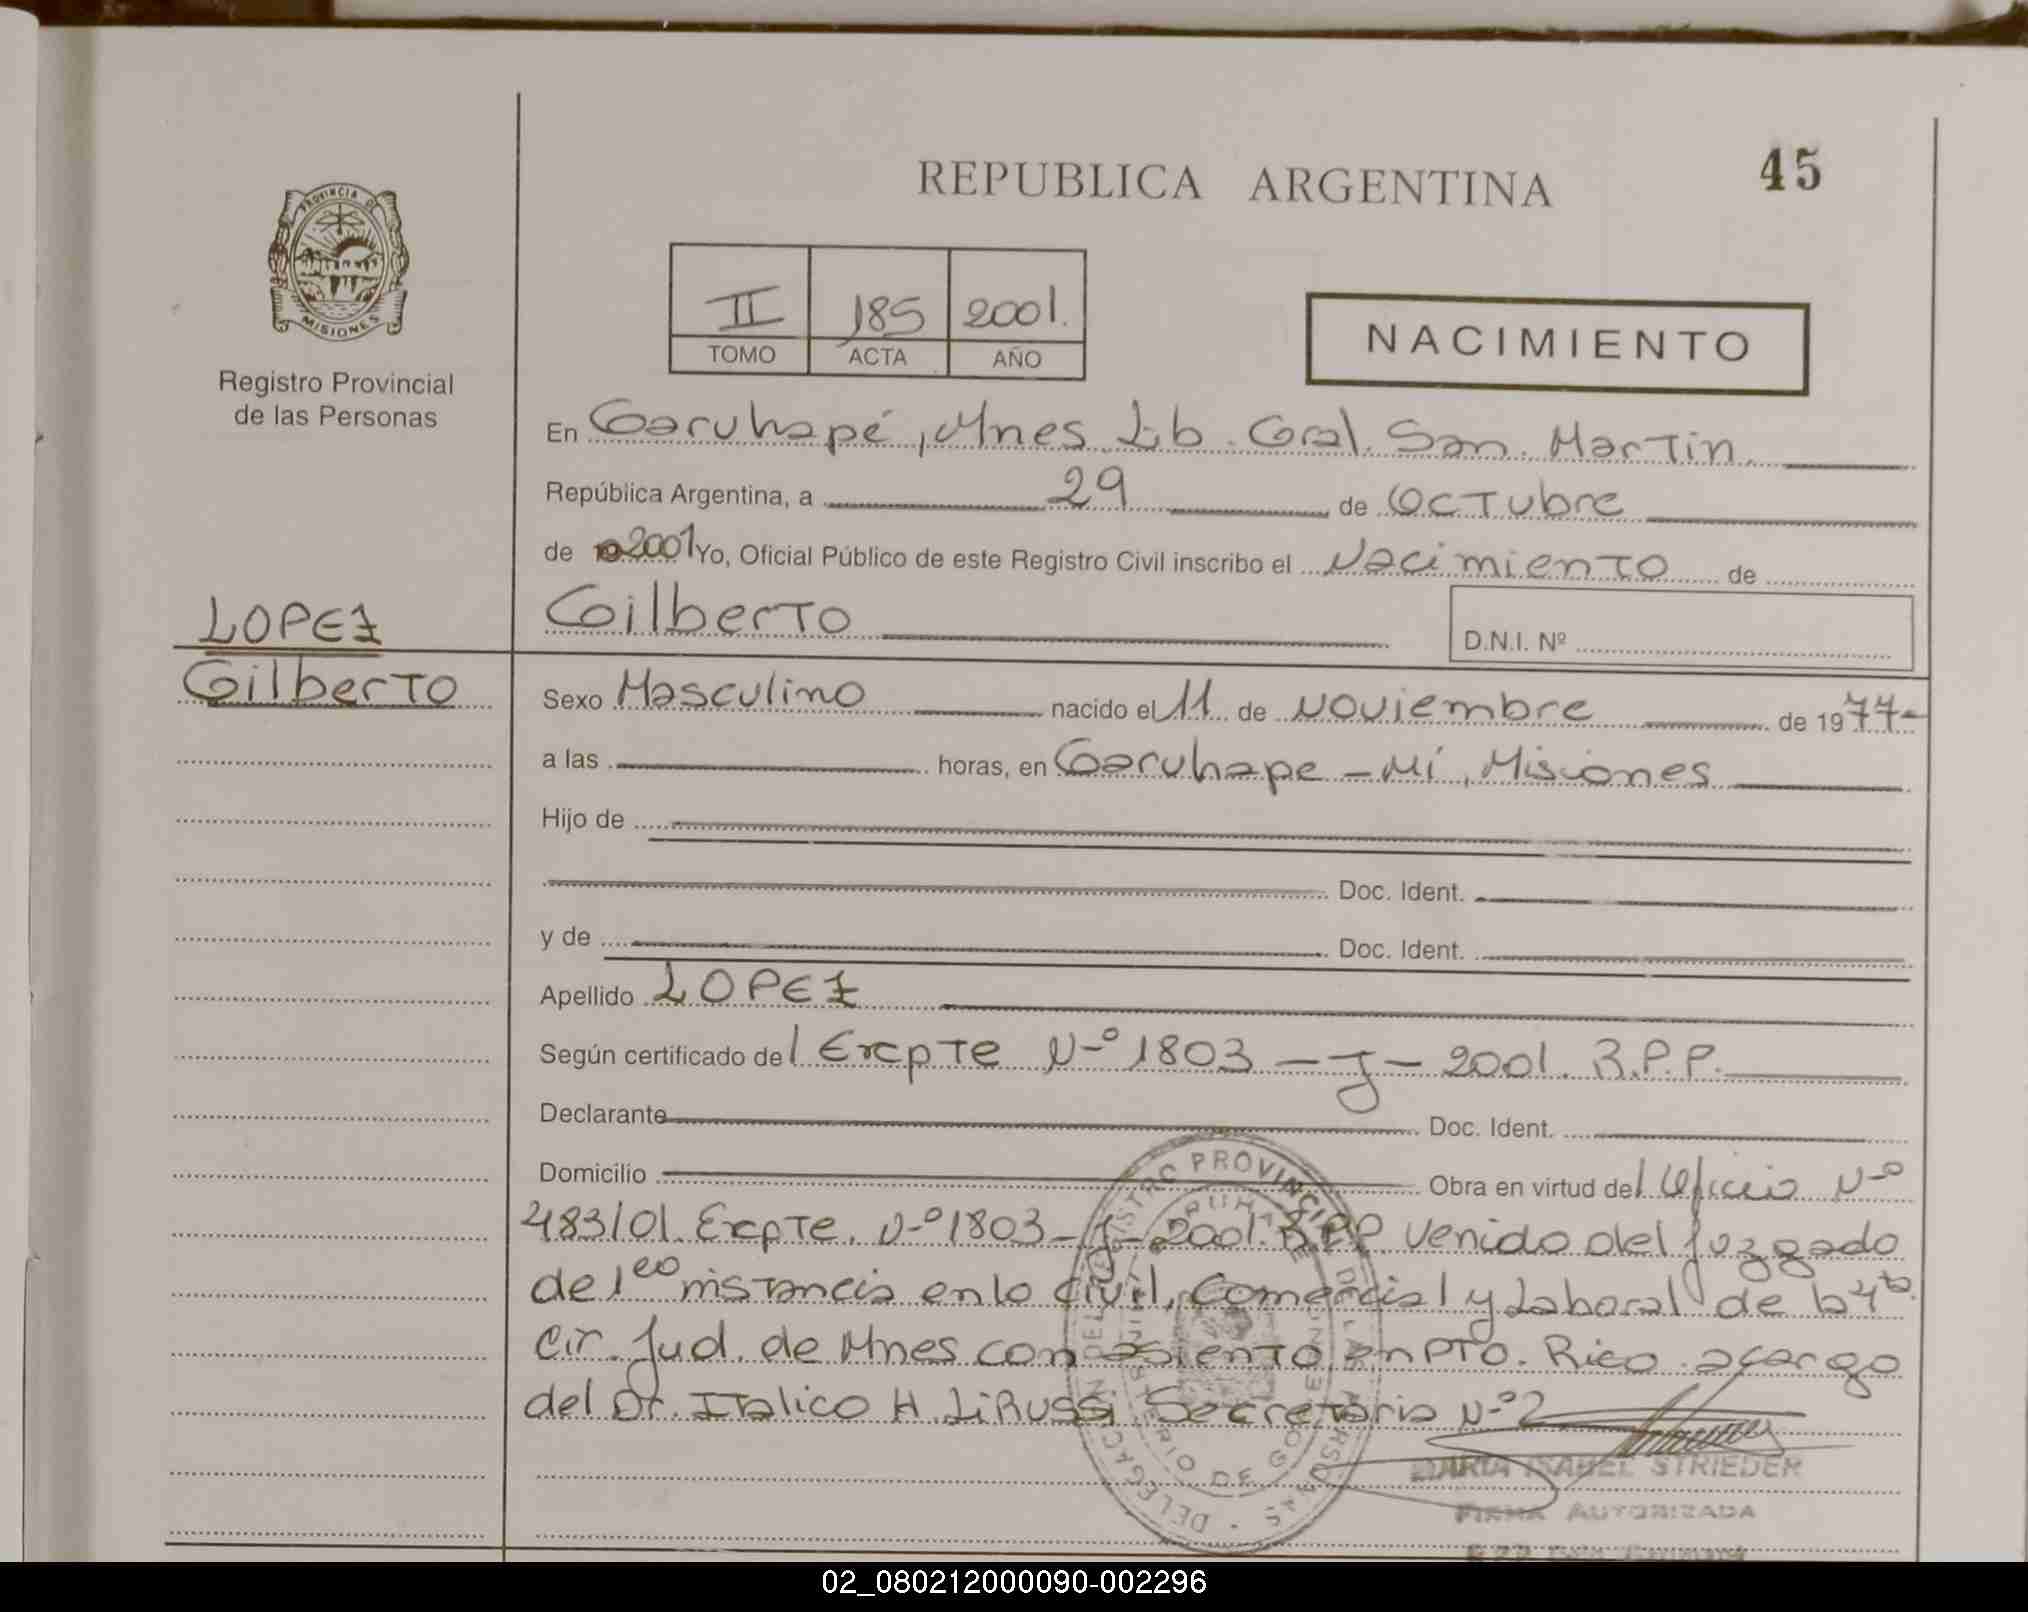 REPUBLICA ARGENTINA
45
PROVINCIA DE
MISIONES
Registro Provincial
de las Personas
II 185 2001.
TOMO ACTA AÑO
NACIMIENTO
En Garuhapé, Mnes Lib. Gral. San Martin.
República Argentina, a 29 de Octubre
de 2001 Yo, Oficial Público de este Registro Civil inscribo el Nacimiento de
Gilberto
D.N.I. Nº
LOPEZ
Gilberto
Sexo Masculino nacido el 11 de Noviembre de 1977-
a las horas, en Garuhape-Mí, Misiones
Hijo de
Doc. Ident.
y de Doc. Ident.
Apellido LOPEZ
Según certificado del Expte N-º 1803 - J - 2001. R.P.P.
Declarante Doc. Ident.
Domicilio Obra en virtud del Oficio N-º
483/01. Expte. N-º 1803 - J - 2001. R.P.P. venido del Juzgado
de 1 instancia en lo civil, Comercial y Laboral de la 4ta.
Cir. Jud. de Mnes con asiento en Pto. Rico a cargo
del Dr. Italico H. LiRussi Secretaria N-º 2
MARIA ISABEL STRIEDER
FIRMA AUTORIZADA
02_080212000090-002296